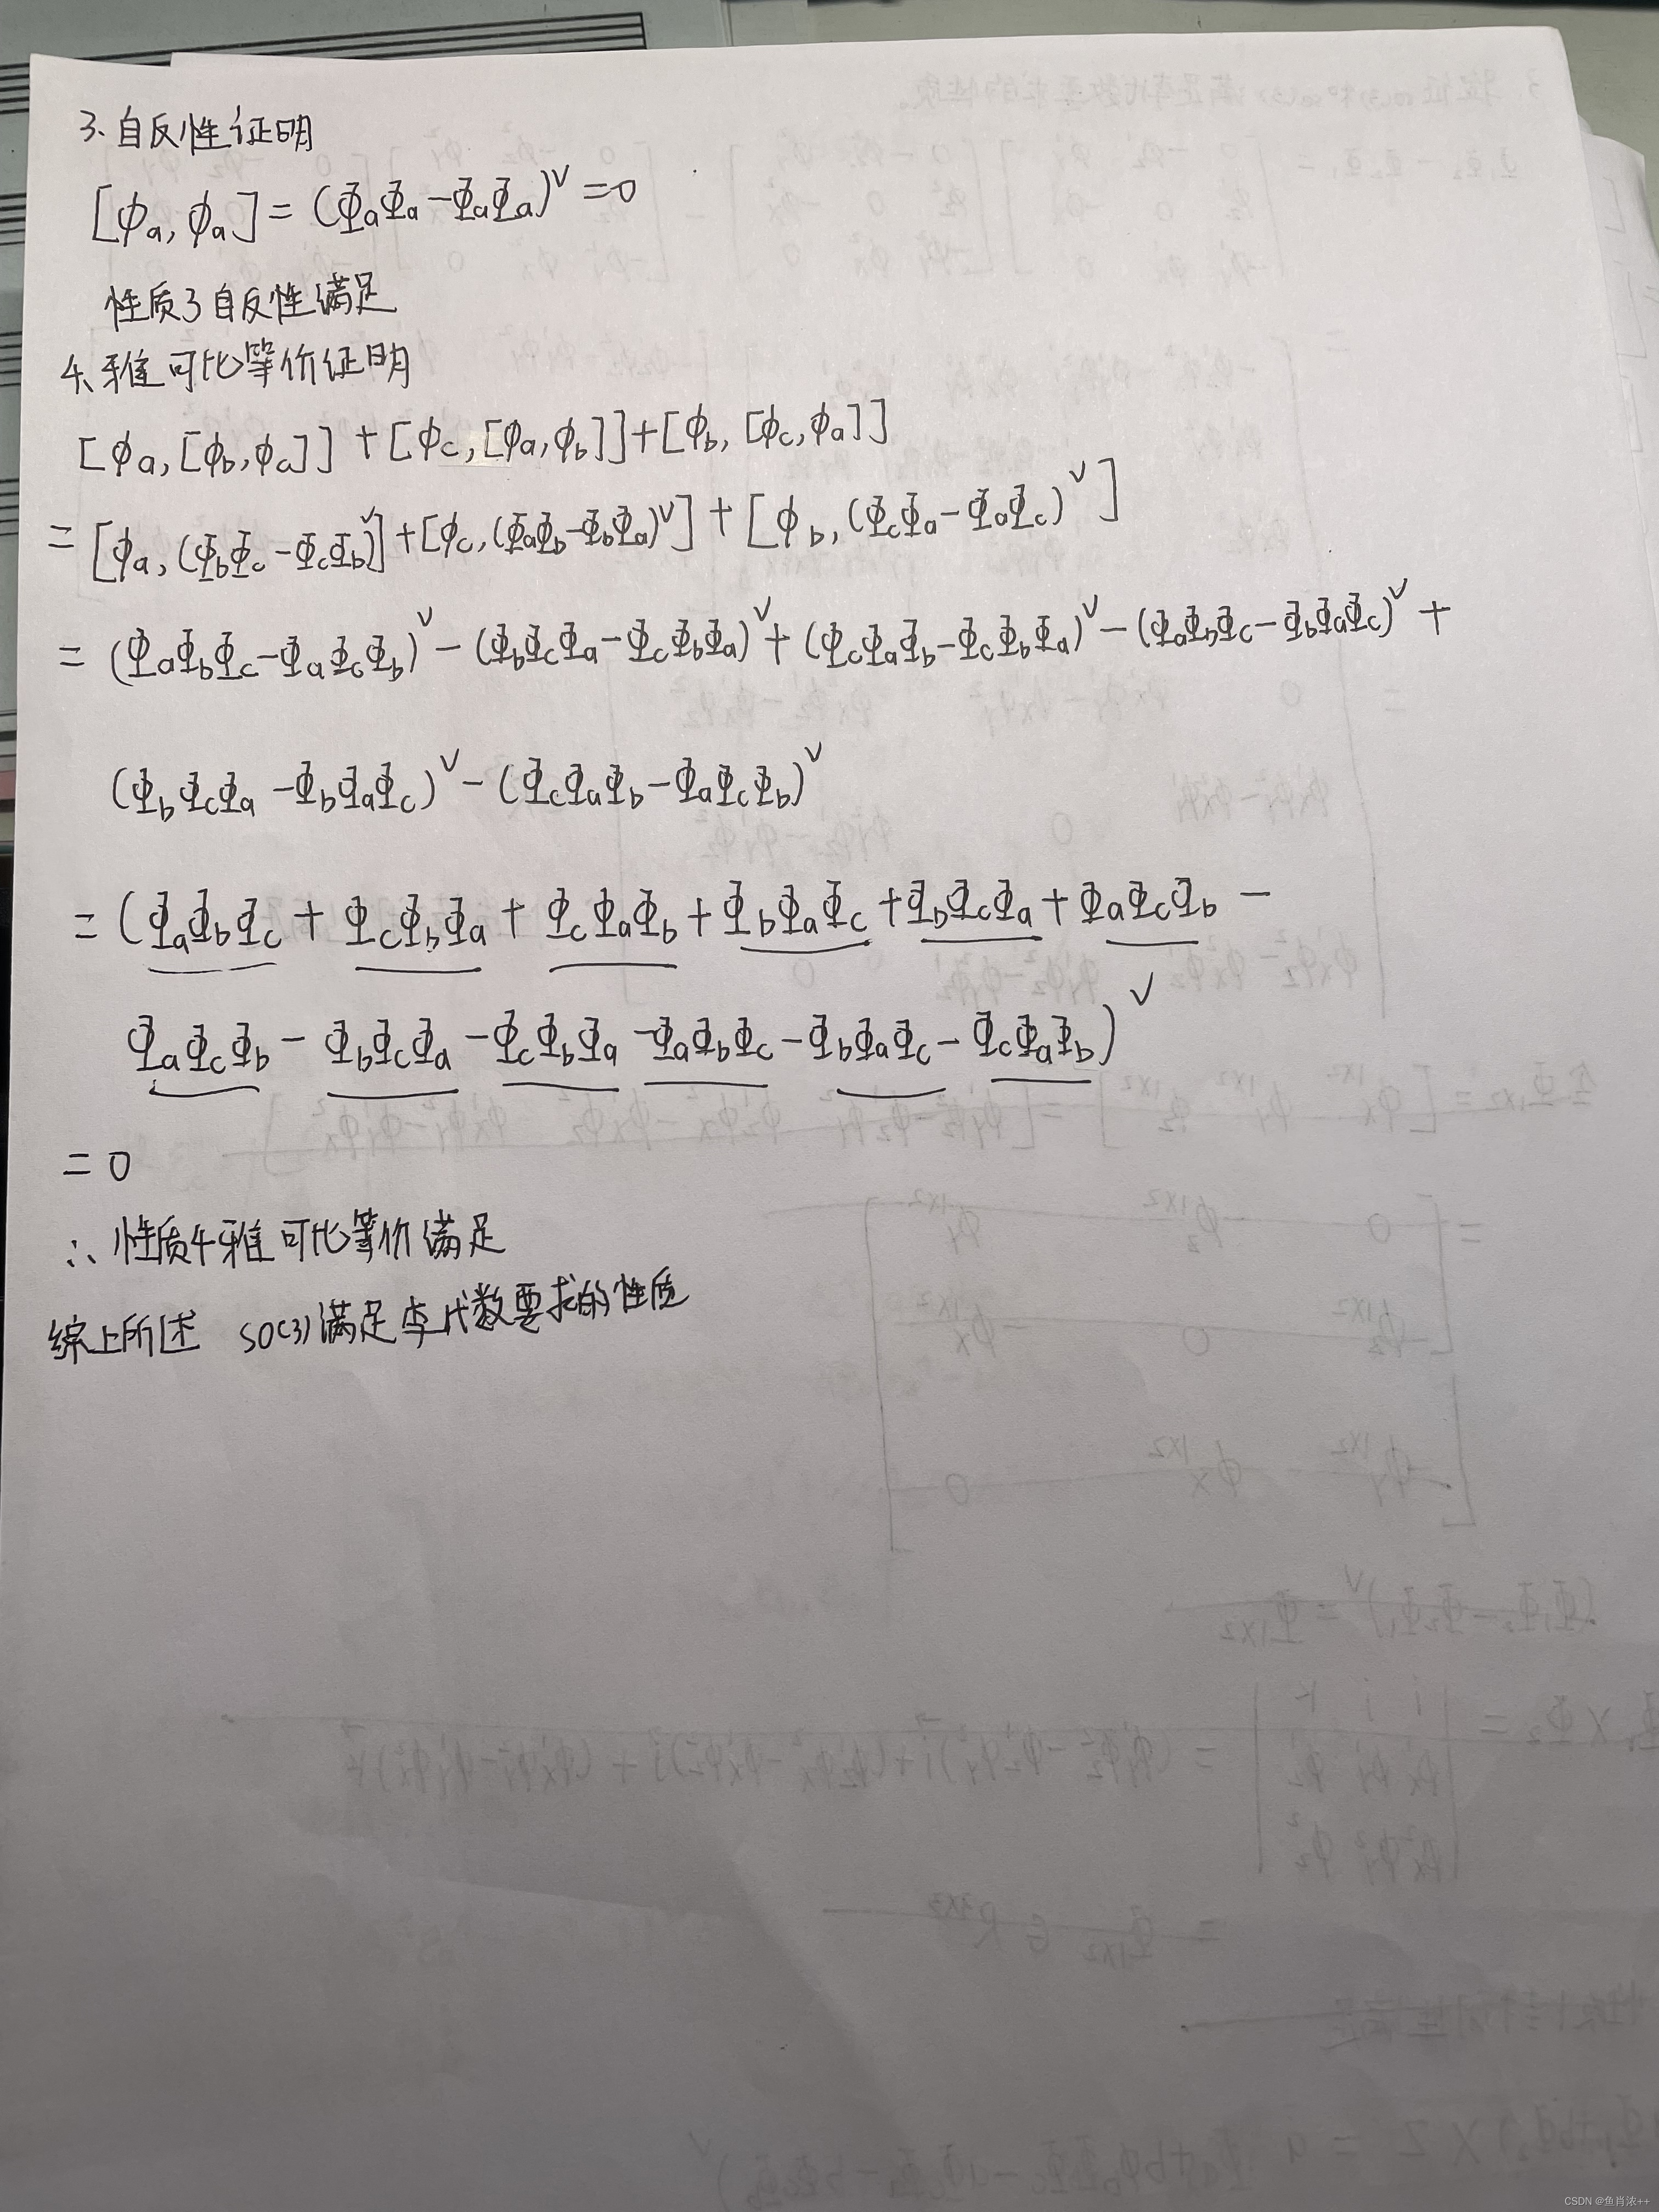 3、自反性证明
[ϕa, ϕa] = (ΦaΦa-ΦaΦa)^∨ = 0
性质3自反性满足
4、雅可比等价证明
[ϕa,[ϕb,ϕc]] + [ϕc,[ϕa,ϕb]]+[ϕb, [ϕc,ϕa]]
= [ϕa, (ΦbΦc-ΦcΦb)^∨] + [ϕc,(ΦaΦb-ΦbΦa)^∨] + [ϕb, (ΦcΦa-ΦaΦc)^∨]
= (ΦaΦbΦc-ΦaΦcΦb)^∨ - (ΦbΦcΦa-ΦcΦbΦa)^∨ + (ΦcΦaΦb-ΦcΦbΦa)^∨ - (ΦaΦbΦc-ΦbΦaΦc)^∨ +
(ΦbΦcΦa-ΦbΦaΦc)^∨ - (ΦcΦaΦb-ΦaΦcΦb)^∨
= (ΦaΦbΦc + ΦcΦbΦa + ΦcΦaΦb + ΦbΦaΦc + ΦbΦcΦa + ΦaΦcΦb -
ΦaΦcΦb - ΦbΦcΦa - ΦcΦbΦa - ΦaΦbΦc - ΦbΦaΦc - ΦcΦaΦb)^∨
= 0
∴ 性质4雅可比等价满足
综上所述 so(3)满足李代数要求的性质
CSDN @鱼肖浓++